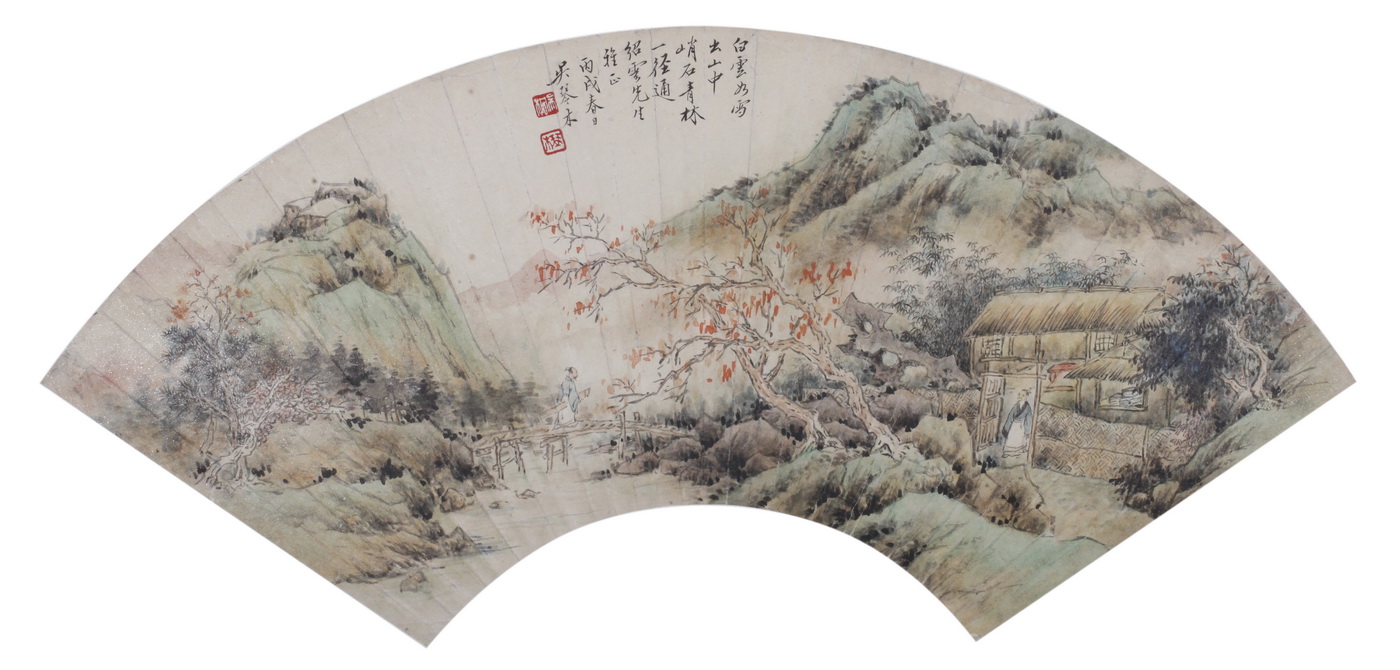 白雲如寫
出山中
峭石青林
一径通
紹雲先生
雅正
丙戌春日
吳琴木